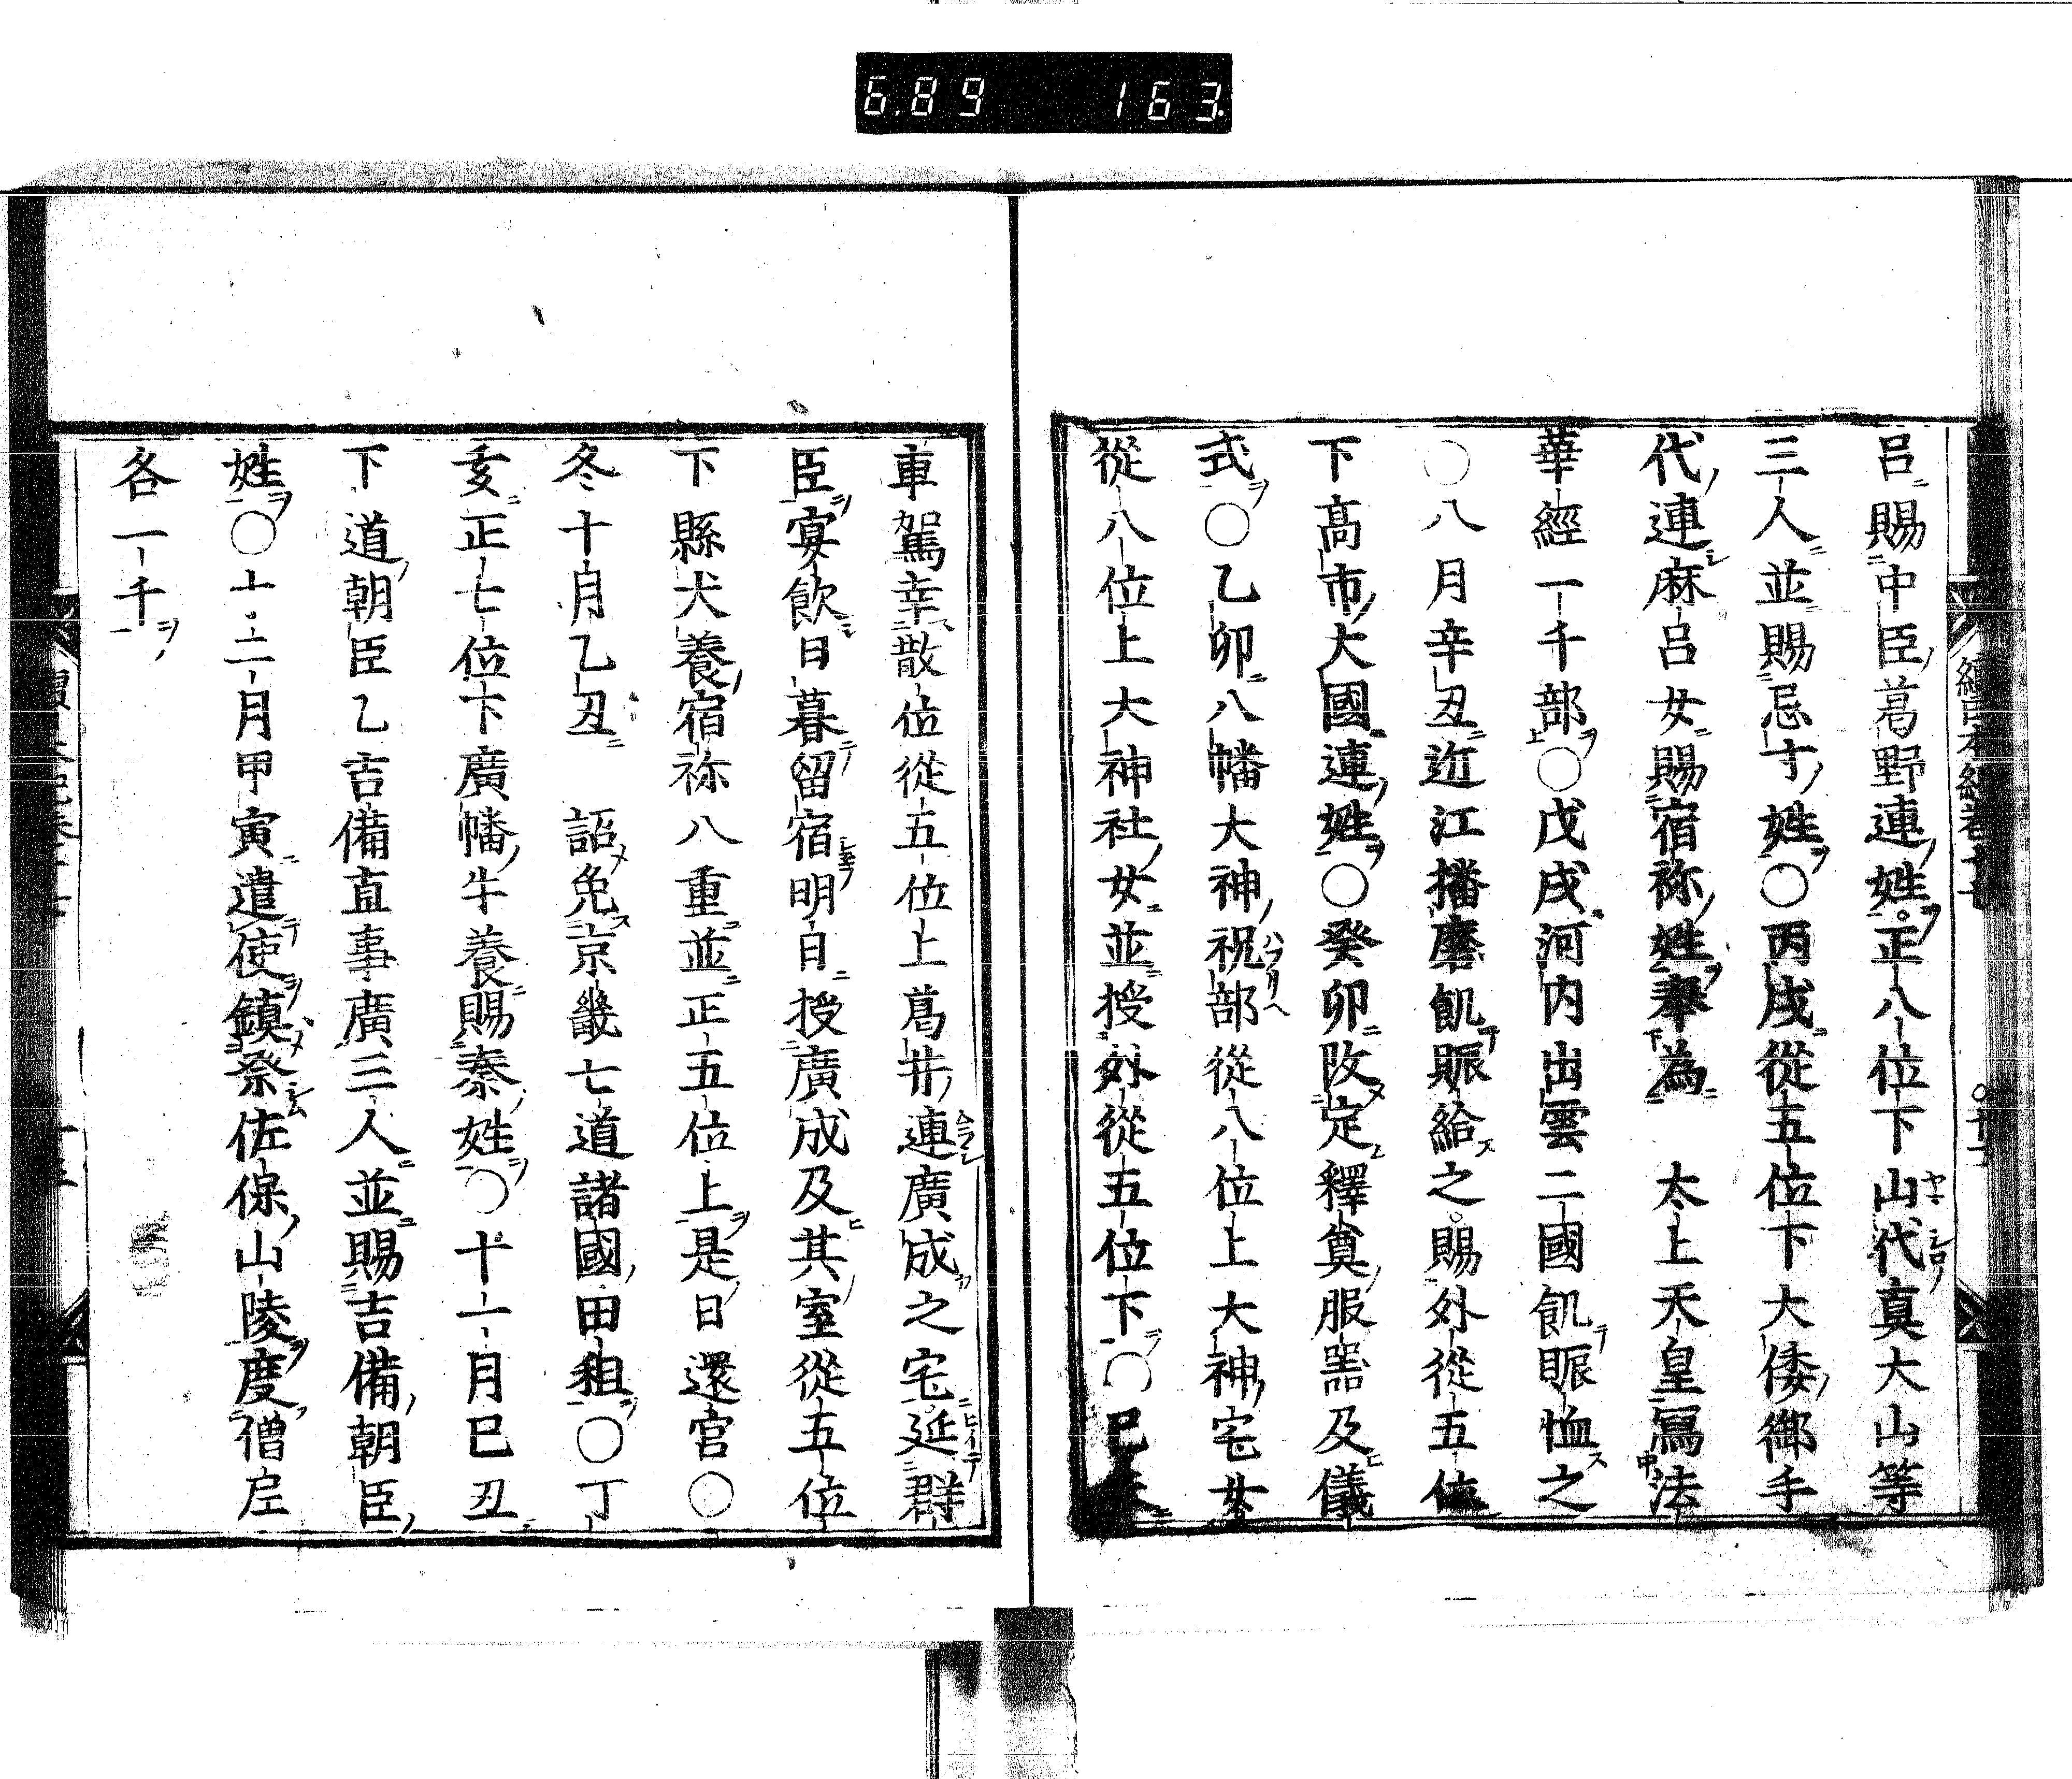 6.89 163.
呂賜中臣葛野連姓正八位下山代真大山等
三人並賜忌寸姓○丙戌從五位下大倭御手
代連麻呂女賜宿祢姓奉為 太上天皇寫法
華經一千部○戊戌河内出雲二國飢賑恤之
○八月辛丑近江播磨飢賑給之賜外從五位
下高市大國連姓○癸卯改定釋奠服器及儀
式○乙卯八幡大神祝部從八位上大神宅女
從八位上大神社女並授外從五位下○
車駕幸散位從五位上葛井連廣成之宅延群
臣宴飲日暮留宿明日授廣成及其室從五位
下縣犬養宿祢八重並正五位上是日還宮○
冬十月乙丑 詔免京畿七道諸國田租○丁
亥正七位下廣幡牛養賜秦姓○十一月己丑
下道朝臣乙吉備直事廣三人並賜吉備朝臣
姓○十二月甲寅遣使鎮祭佐保山陵度僧尼
各一千